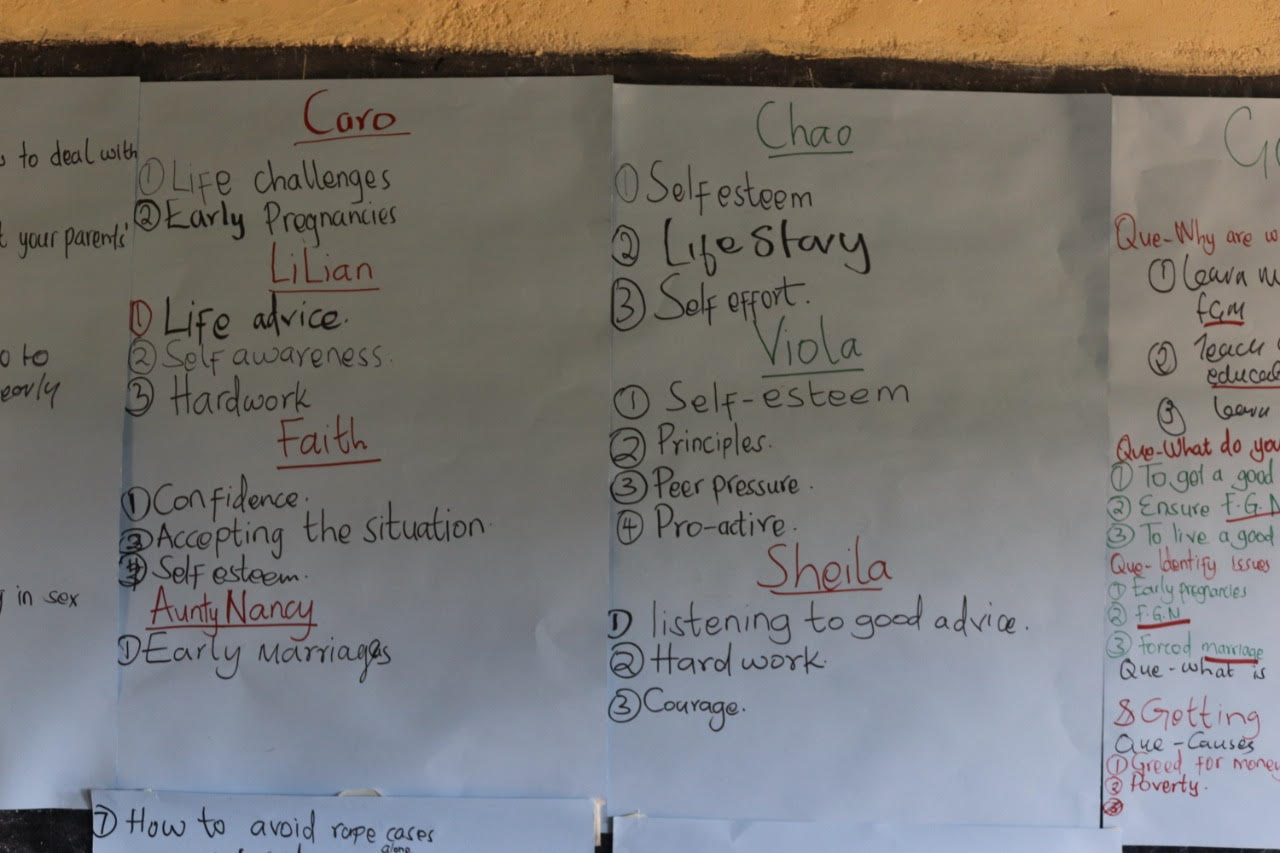 to deal with
your parents'
to
early
in sex
Caro
① Life challenges
② Early Pregnancies
LiLian
① Life advice.
② Self awareness.
③ Hardwork
Faith
① Confidence.
② Accepting the situation
③ Self esteem.
Aunty Nancy
① Early Marriages
⑦ How to avoid rape cases
alone
Chao
① Self esteem
② Life Story
③ Self effort.
Viola
① Self-esteem
② Principles.
③ Peer pressure.
④ Pro-active.
Sheila
① listening to good advice.
② Hard work.
③ Courage.
Que-Why are
① learn
FGM
② Teach
③ learn
Que-What do you
① To get a good
② Ensure F.G.N
③ To live a good
Que-Identify issues
① Early pregnancies
② F.G.N
③ Forced marriage
Que-what is
Getting
Que-Causes
① Greed for money
② Poverty.
③